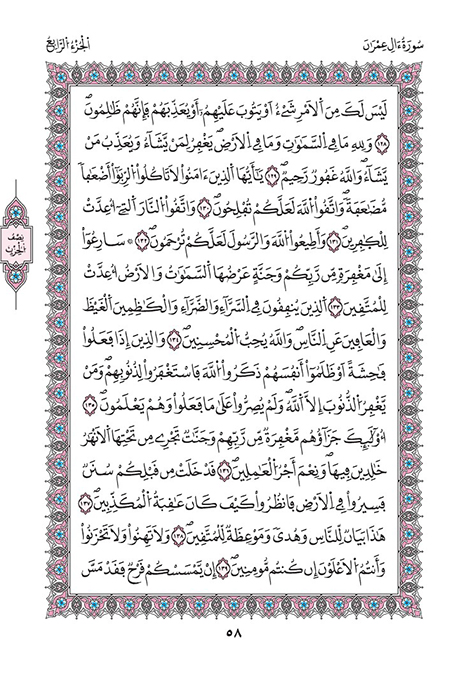 سُورَةُ ءَالِ عِمْرَٰنَ
اَلْجُزْءُ الرَّابِعُ
لَيْسَ لَكَ مِنَ اَلَامْرِ شَےْءٌ اَوْ يَتُوبَ عَلَيْهِمُۥٓ أَوْ يُعَذِّبَهُمْ فَإِنَّهُمْ ظَٰلِمُونَۖ
١٢٨ وَلِلهِ مَا فِے اِلسَّمَٰوَٰتِ وَمَا فِے اِلَارْضِۖ يَغْفِرُ لِمَنْ يَّشَآءُ وَيُعَذِّبُ مَنْ
يَّشَآءُۖ وَاللَّهُ غَفُورٌ رَّحِيمٌۖ ١٢٩ يَٰٓأَيُّهَا اَلذِينَ ءَامَنُواْ لَا تَاكُلُواْ اُلرِّبَوٰٓاْ أَضْعَٰفاً
مُّضَٰعَفَةًۖ وَاتَّقُواْ اُللَّهَ لَعَلَّكُمْ تُفْلِحُونَۖ ١٣٠ وَاتَّقُواْ اُلنَّارَ اَلتِےٓ أُعِدَّتْ
لِلْكٰ۪فِرِينَۖ ١٣١ وَأَطِيعُواْ اُللَّهَ وَالرَّسُولَ لَعَلَّكُمْ تُرْحَمُونَۖ ١٣٢ ۞ سَارِعُوٓاْ
إِلَىٰ مَغْفِرَةٍ مِّن رَّبِّكُمْ وَجَنَّةٍ عَرْضُهَا اَلسَّمَٰوَٰتُ وَالَارْضُ أُعِدَّتْ
لِلْمُتَّقِينَ ١٣٣ اَلذِينَ يُنفِقُونَ فِے اِلسَّرَّآءِ وَالضَّرَّآءِ وَالْكَٰظِمِينَ اَلْغَيْظَ
وَالْعَافِينَ عَنِ اِلنَّاسِۖ وَاللَّهُ يُحِبُّ اُلْمُحْسِنِينَۖ ١٣٤ وَالذِينَ إِذَا فَعَلُواْ
فَٰحِشَةً اَوْ ظَلَمُوٓاْ أَنفُسَهُمْ ذَكَرُواْ اُللَّهَ فَاسْتَغْفَرُواْ لِذُنُوبِهِمْ وَمَنْ
يَّغْفِرُ اُلذُّنُوبَ إِلَّا اَللَّهُۖ وَلَمْ يُصِرُّواْ عَلَىٰ مَا فَعَلُواْ وَهُمْ يَعْلَمُونَۖ ١٣٥
أُوْلَٰٓئِكَ جَزَآؤُهُم مَّغْفِرَةٌ مِّن رَّبِّهِمْ وَجَنَّٰتٌ تَجْرِے مِن تَحْتِهَا اَلَانْهَٰرُ
خَٰلِدِينَ فِيهَاۖ وَنِعْمَ أَجْرُ اُلْعَٰمِلِينَۖ ١٣٦ قَدْ خَلَتْ مِن قَبْلِكُمْ سُنَنٌ
فَسِيرُواْ فِے اِلَارْضِ فَانظُرُواْ كَيْفَ كَانَ عَٰقِبَةُ اُلْمُكَذِّبِينَۖ ١٣٧
هَٰذَا بَيَانٌ لِّلنَّاسِ وَهُدىً وَمَوْعِظَةٌ لِّلْمُتَّقِينَۖ ١٣٨ وَلَا تَهِنُواْ وَلَا تَحْزَنُواْ
وَأَنتُمُ اُلَاعْلَوْنَ إِن كُنتُم مُّومِنِينَۖ ١٣٩ إِنْ يَّمْسَسْكُمْ قَرْحٌ فَقَدْ مَسَّ
نِصْف
الْحِزْب
٥٨